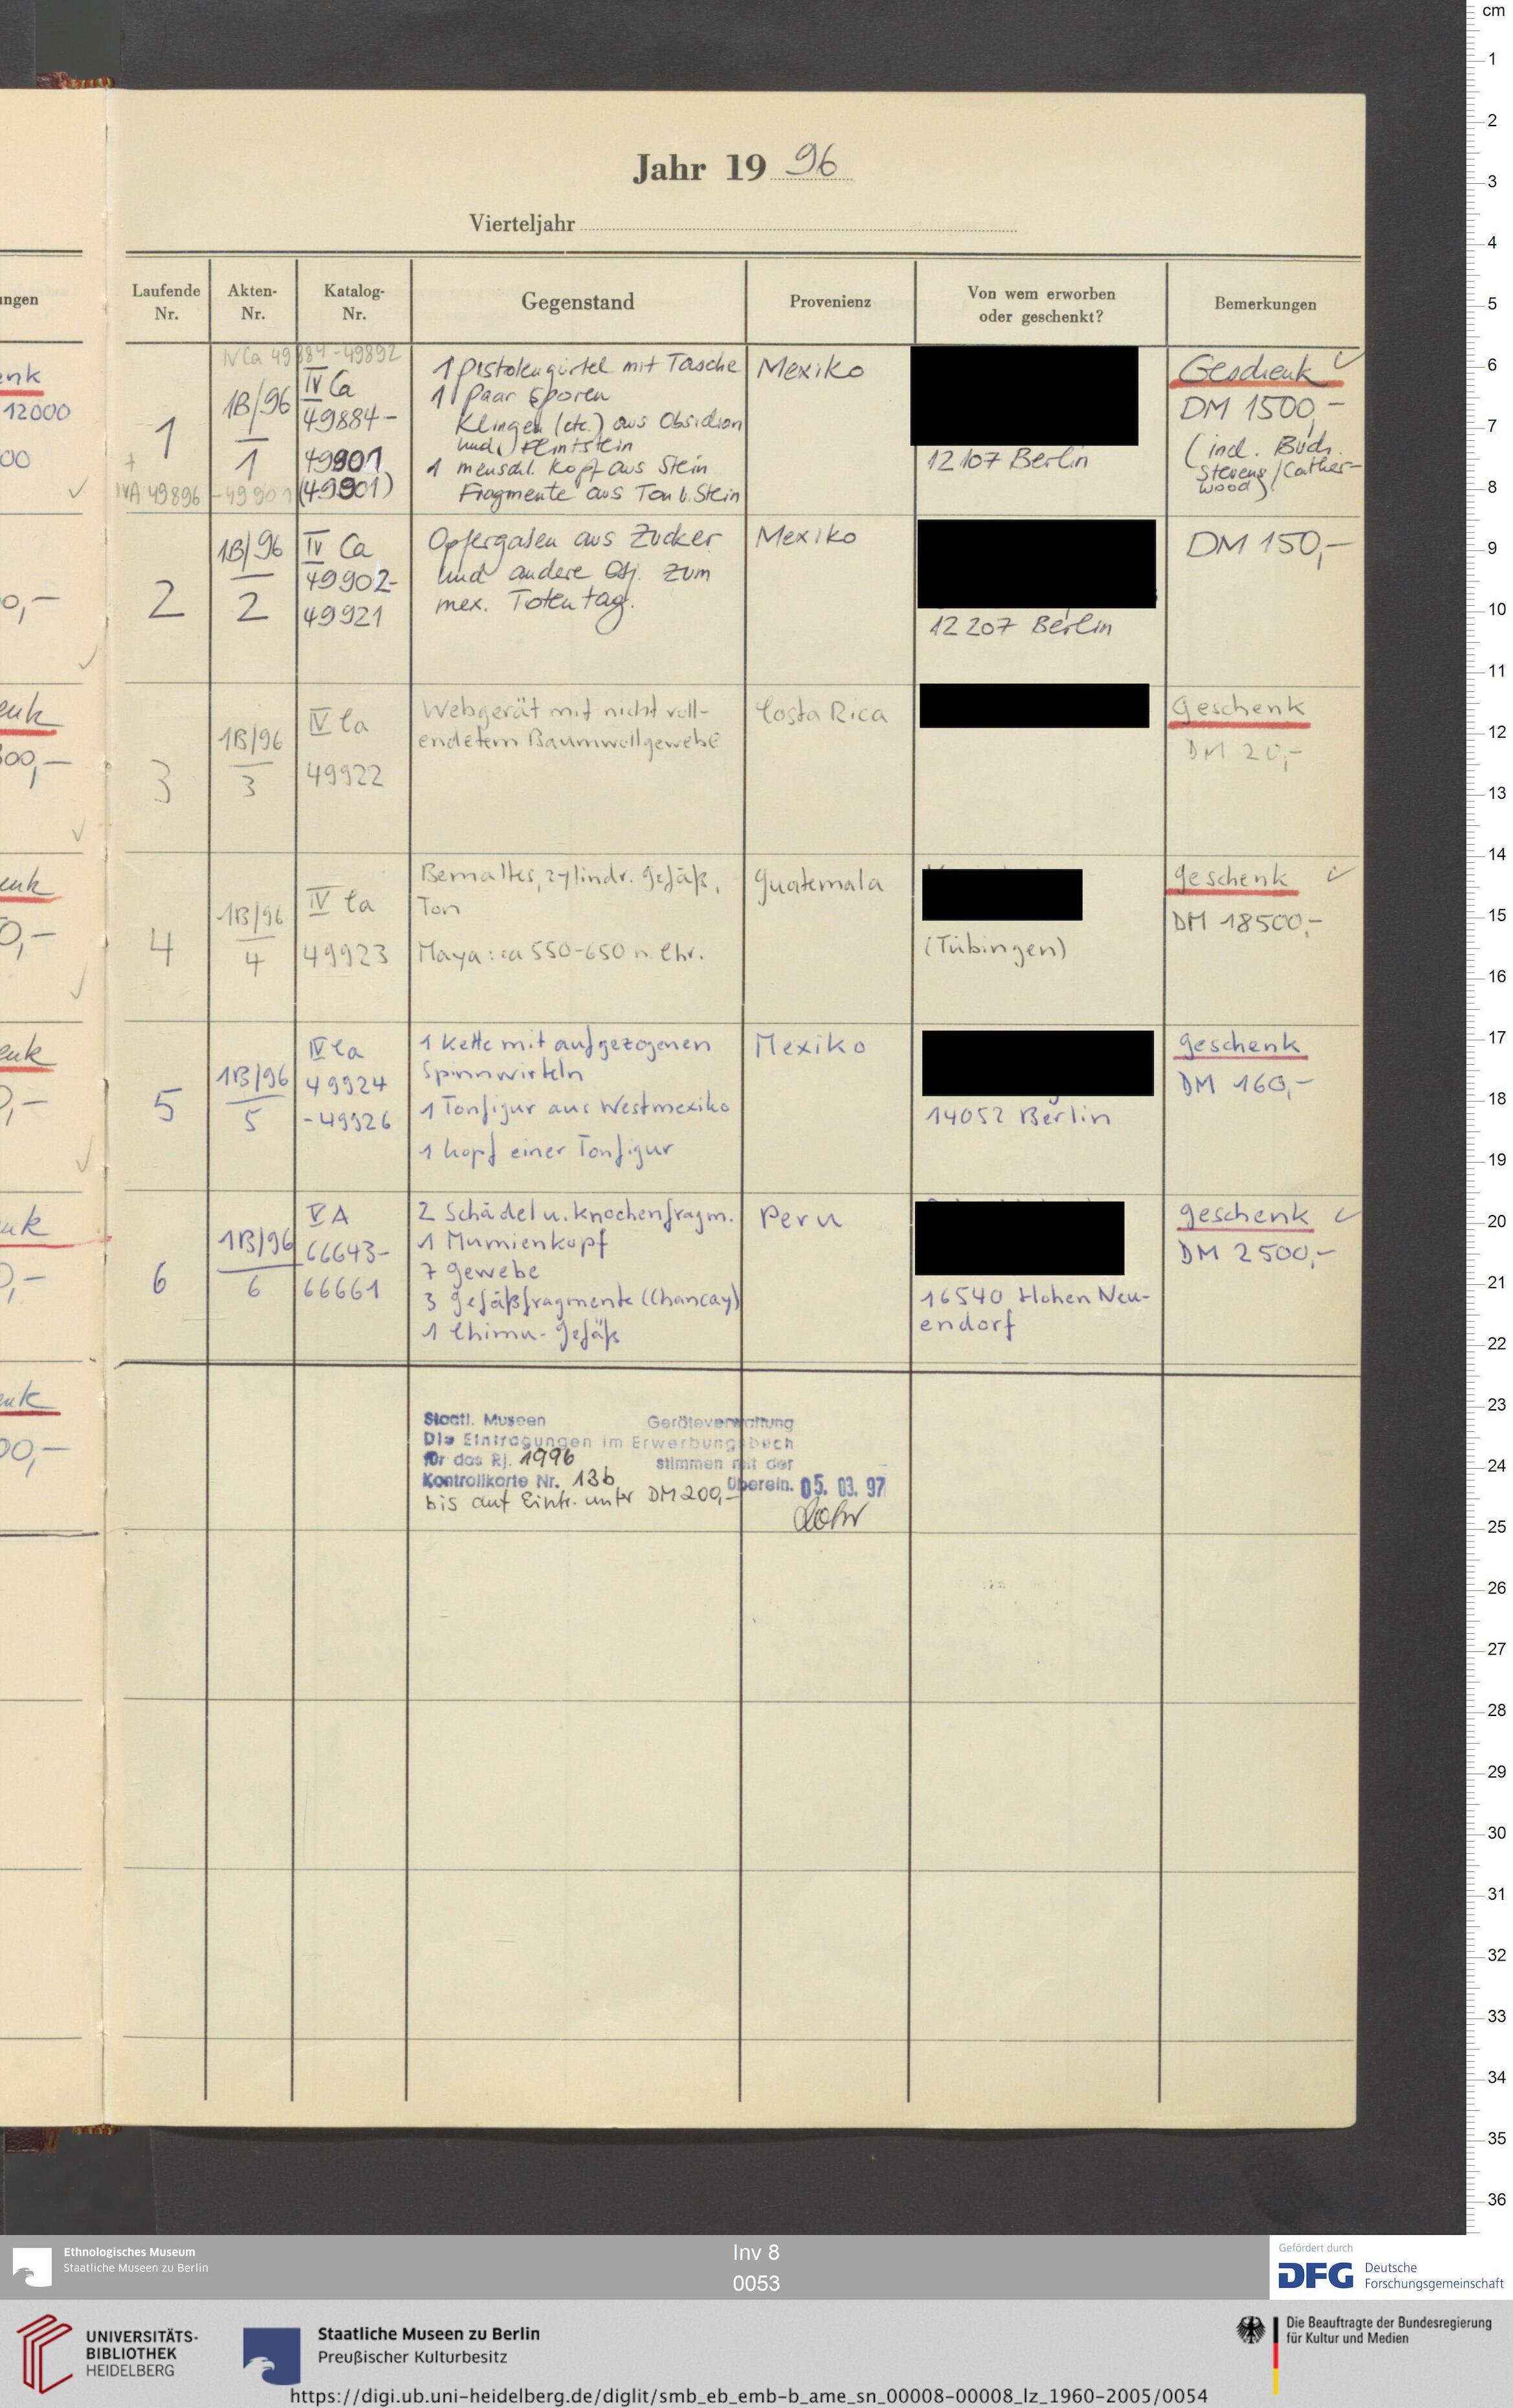 Jahr 19 96
Vierteljahr
Laufende Nr.
Akten-Nr.
Katalog-Nr.
Gegenstand
Provenienz
Von wem erworben oder geschenkt?
Bemerkungen
IV Ca 49884-49892
1
+
IVA 49896-49901
1B/96
1
IV Ca
49884-
49901
(49901)
1 Pistolengürtel mit Tasche
1 Paar Sporen
Klingen (etc.) aus Obsidian
und Flintstein
1 menschl. Kopf aus Stein
Fragmente aus Ton u. Stein
Mexiko
12107 Berlin
Geschenk
DM 1500,-
(incl. Buch
Stevens/Cather-
wood)
2
1B/96
2
IV Ca
49902-
49921
Opfergaben aus Zucker
und andere Obj. zum
mex. Totentag.
Mexiko
12207 Berlin
DM 150,-
3
1B/96
3
IV Ca
49922
Webgerät mit nicht voll-
endetem Baumwollgewebe
Costa Rica
Geschenk
DM 20,-
4
1B/96
4
IV Ca
49923
Bemaltes, zylindr. Gefäß,
Ton
Maya: ca 550-650 n. Chr.
Guatemala
(Tübingen)
Geschenk
DM 18500,-
5
1B/96
5
IV Ca
49924
-49926
1 Kette mit aufgezogenen
Spinnwirteln
1 Tonfigur aus Westmexiko
1 Kopf einer Tonfigur
Mexiko
14052 Berlin
Geschenk
DM 160,-
6
1B/96
6
V A
66643-
66661
2 Schädel u. Knochenfragm.
1 Mumienkopf
7 Gewebe
3 Gefäßfragmente (Chancay)
1 Chimu-Gefäß
Peru
16540 Hohen Neu-
endorf
Geschenk
DM 2500,-
Staatl. Museen Geräteverwaltung
Die Eintragungen im Erwerbungsbuch
für das Rj. 1996 stimmen mit der
Kontrollkarte Nr. 13b überein. 05. 03. 97
bis auf Eintr. unter DM 200,-
ngen
enk
12000
00
0,-
enk
00,-
enk
0,-
enk
0,-
nk
0,-
enk
00,-
cm
1
2
3
4
5
6
7
8
9
10
11
12
13
14
15
16
17
18
19
20
21
22
23
24
25
26
27
28
29
30
31
32
33
34
35
36
Ethnologisches Museum
Staatliche Museen zu Berlin
Inv 8
0053
Gefördert durch
DFG Deutsche
Forschungsgemeinschaft
UNIVERSITÄTS-
BIBLIOTHEK
HEIDELBERG
Staatliche Museen zu Berlin
Preußischer Kulturbesitz
Die Beauftragte der Bundesregierung
für Kultur und Medien
https://digi.ub.uni-heidelberg.de/diglit/smb_eb_emb-b_ame_sn_00008-00008_lz_1960-2005/0054